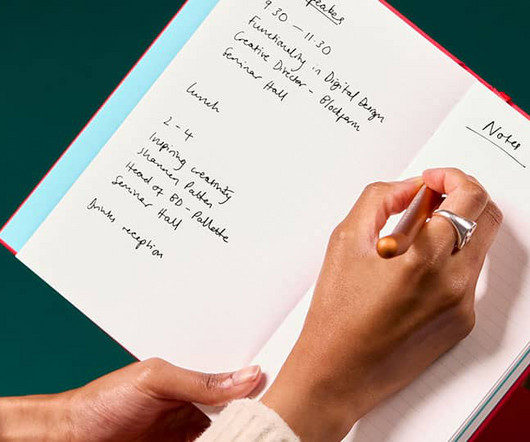 Speakers
9.30 – 11.30
Functionality in Digital Design
Creative Director - Blockfarm
Seminar Hall
Lunch
2 - 4
Inspiring creativity
Shannen Patter
Head of BD - Pallette
Seminar Hall
Drinks reception
Notes